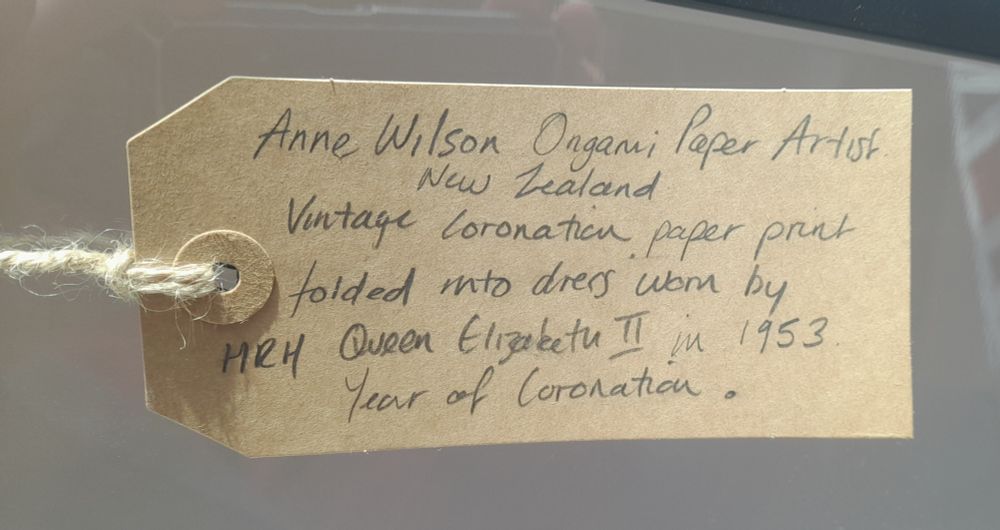 Anne Wilson Origami Paper Artist.
New Zealand
Vintage Coronation paper print
folded into dress worn by
HRH Queen Elizabeth II in 1953.
Year of Coronation.